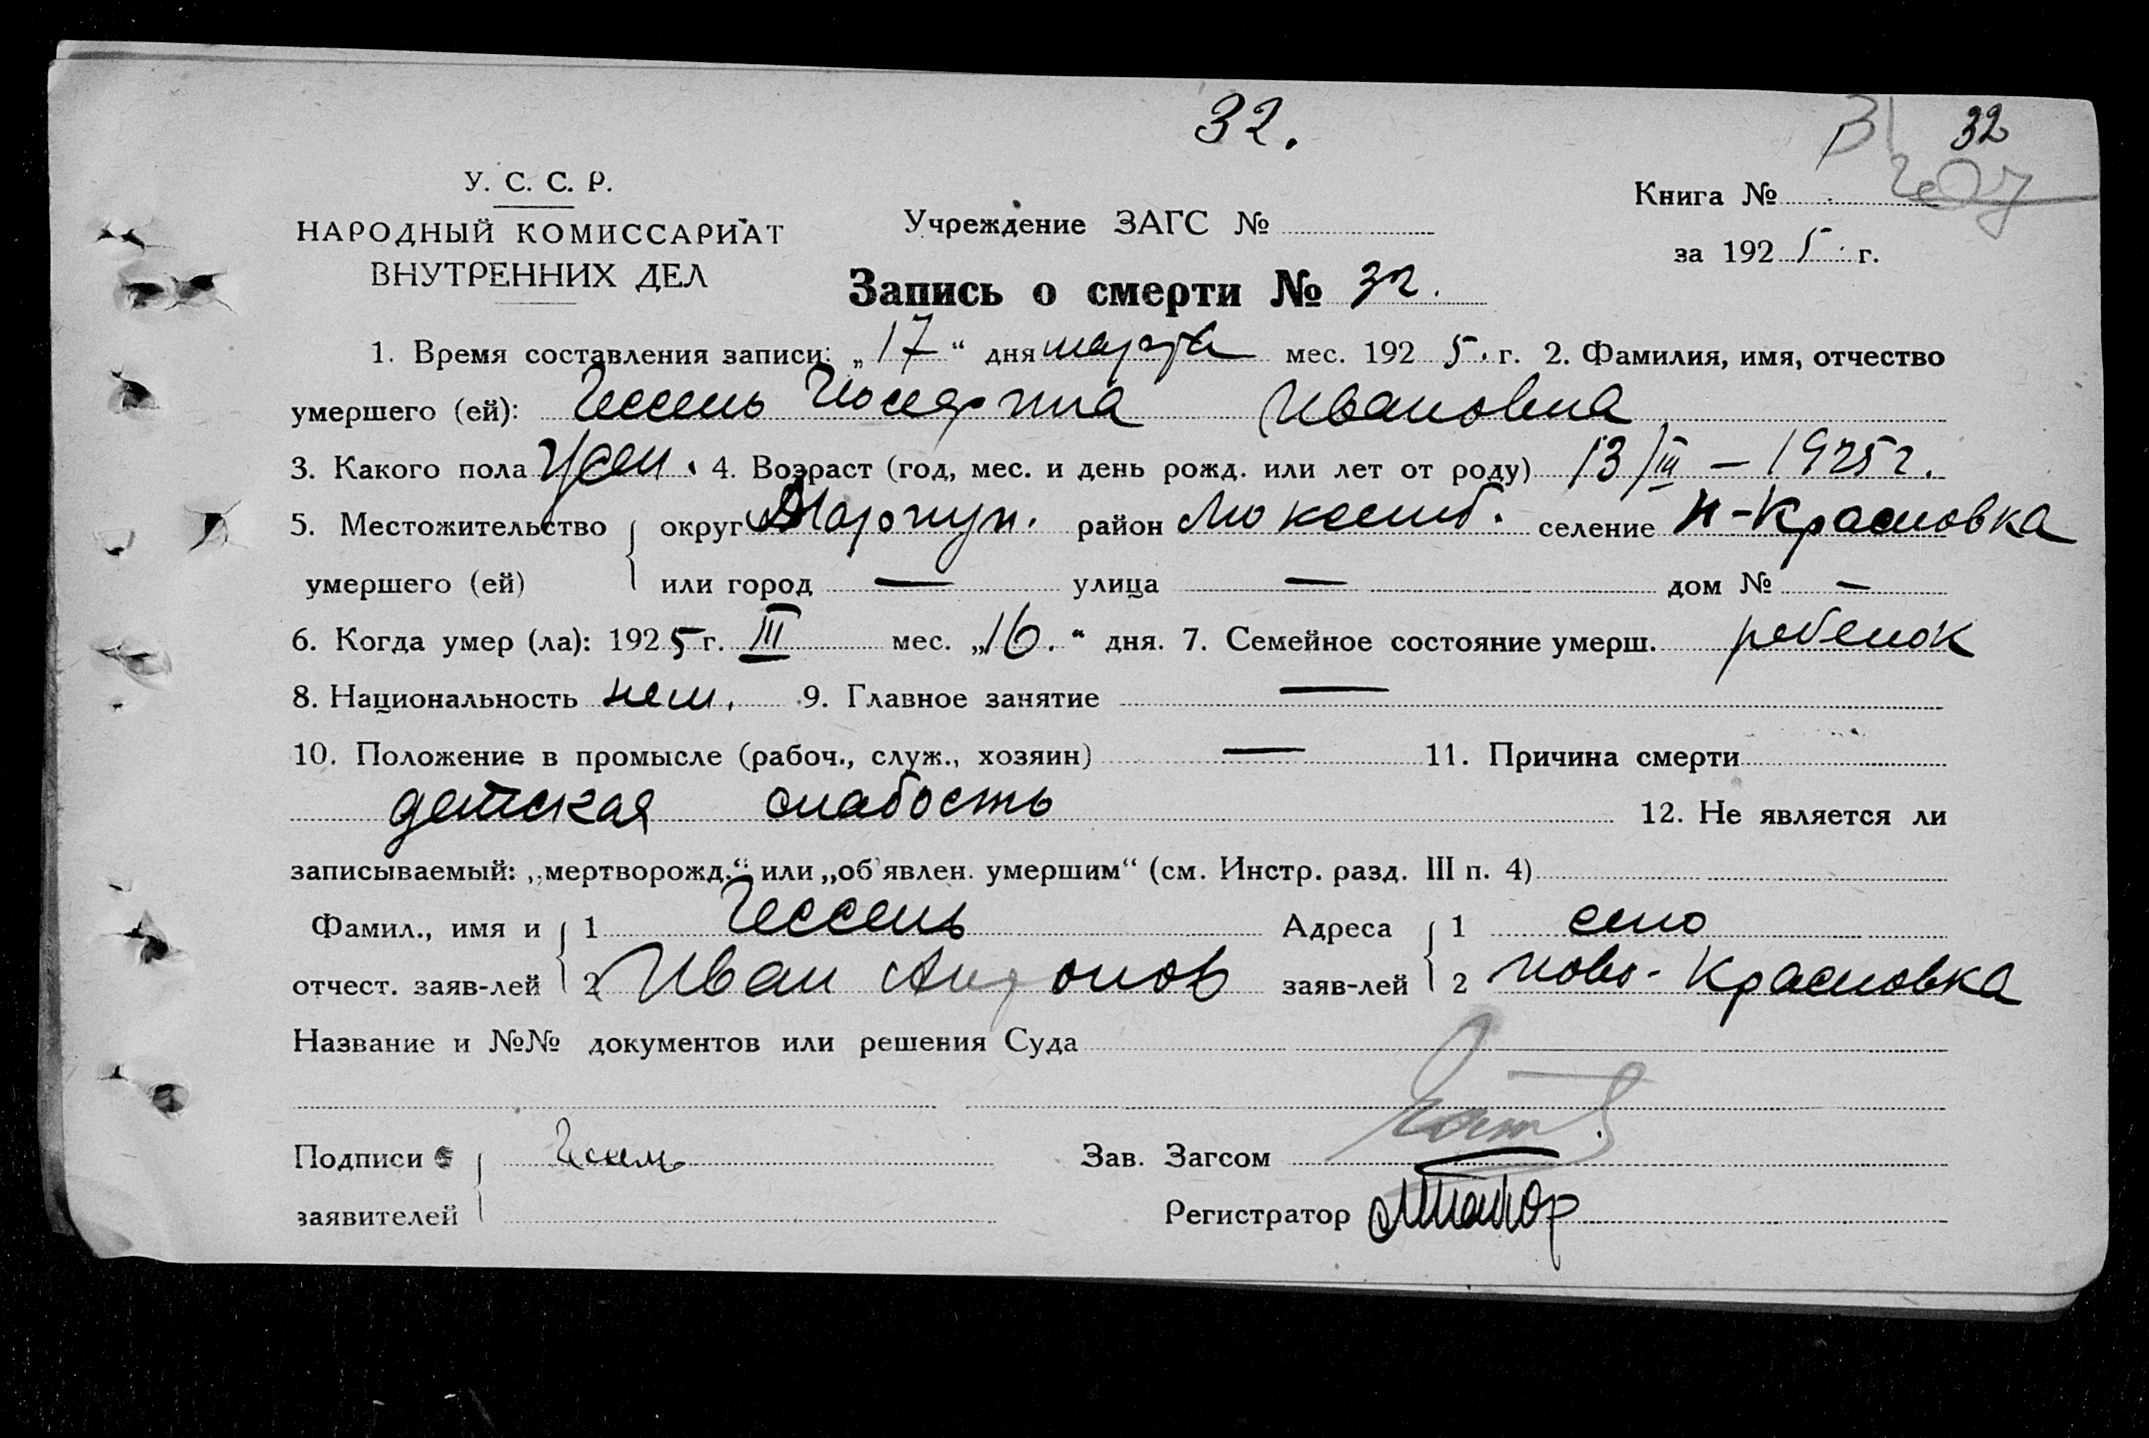 32.
32
У. С. С. Р.
НАРОДНЫЙ КОМИССАРИАТ
ВНУТРЕННИХ ДЕЛ
Учреждение ЗАГС №
Книга №
за 1925 г.
Запись о смерти № 32.
1. Время составления записи: „17“ дня марта мес. 1925. г. 2. Фамилия, имя, отчество
умершего (ей): Гессель Иосефина Ивановна
3. Какого пола жен. 4. Возраст (год, мес. и день рожд. или лет от роду) 13/III – 1925 г.
5. Местожительство округ Мариуп. район селение Н-Красновка
умершего (ей) или город — улица — дом № —
6. Когда умер (ла): 1925 г. III мес. „16.“ дня. 7. Семейное состояние умерш. ребенок
8. Национальность нем. 9. Главное занятие —
10. Положение в промысле (рабоч., служ., хозяин) — 11. Причина смерти
детская слабость 12. Не является ли
записываемый: „мертворожд.“ или „об'явлен. умершим“ (см. Инстр. разд. III п. 4)
Фамил., имя и 1 Гессель Адреса 1 село
отчест. заяв-лей 2 Иван Антонов заяв-лей 2 Ново-Красновка
Название и №№ документов или решения Суда
Подписи Гессель Зав. Загсом
заявителей Регистратор